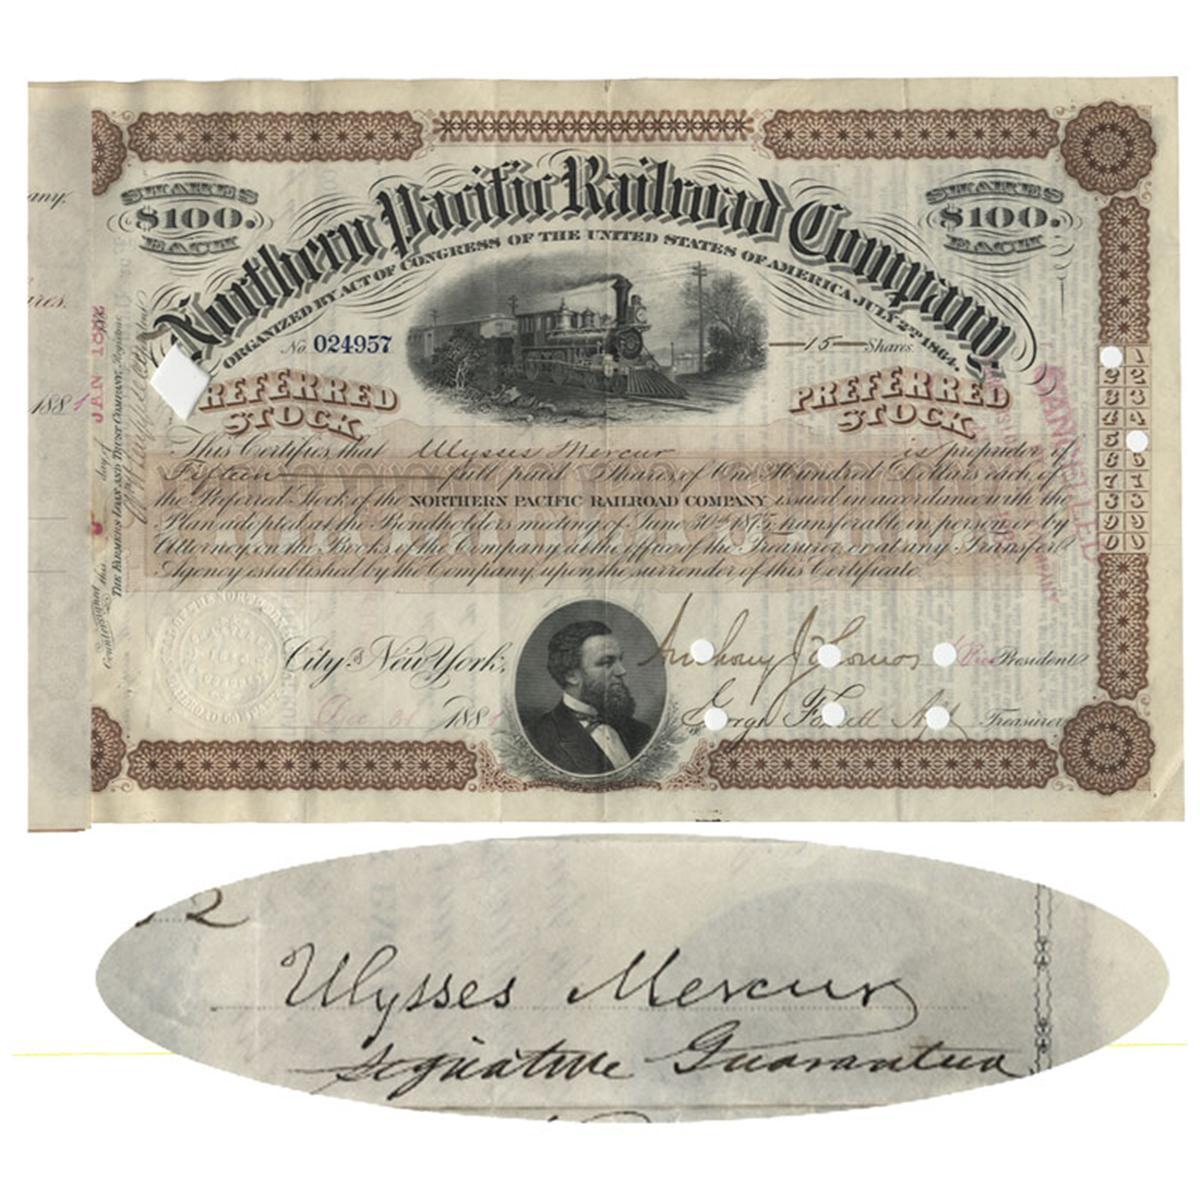 any.
ares.
188
JAN 1882
Countersigned this day of
THE FARMERS LOAN AND TRUST COMPANY, Registrar
SHARES
$100.
EACH
SHARES
$100.
EACH
Northern Pacific Railroad Company
ORGANIZED BY ACT OF CONGRESS OF THE UNITED STATES OF AMERICA, JULY 2ND 1864.
No. 024957
15 Shares.
PREFERRED
STOCK
PREFERRED
STOCK
This Certifies that Ulysses Mercur is proprietor of
Fifteen full paid Shares of One Hundred Dollars each, of
the Preferred Stock of the NORTHERN PACIFIC RAILROAD COMPANY issued in accordance with the
Plan adopted at the Bondholders meeting of June 30th 1875, transferable in person or by
Attorney on the Books of the Company at the office of the Treasurer or at any Transfer
Agency established by the Company, upon the surrender of this Certificate.
CANCELLED
1
2 2
3 3
4 4
5
6 6
7 7
8 8
9 9
0 0
City of New York,
Dec 188
Anthony J Thomas Vice President
George Treasurer
2
Ulysses Mercur
Signature Guaranteed